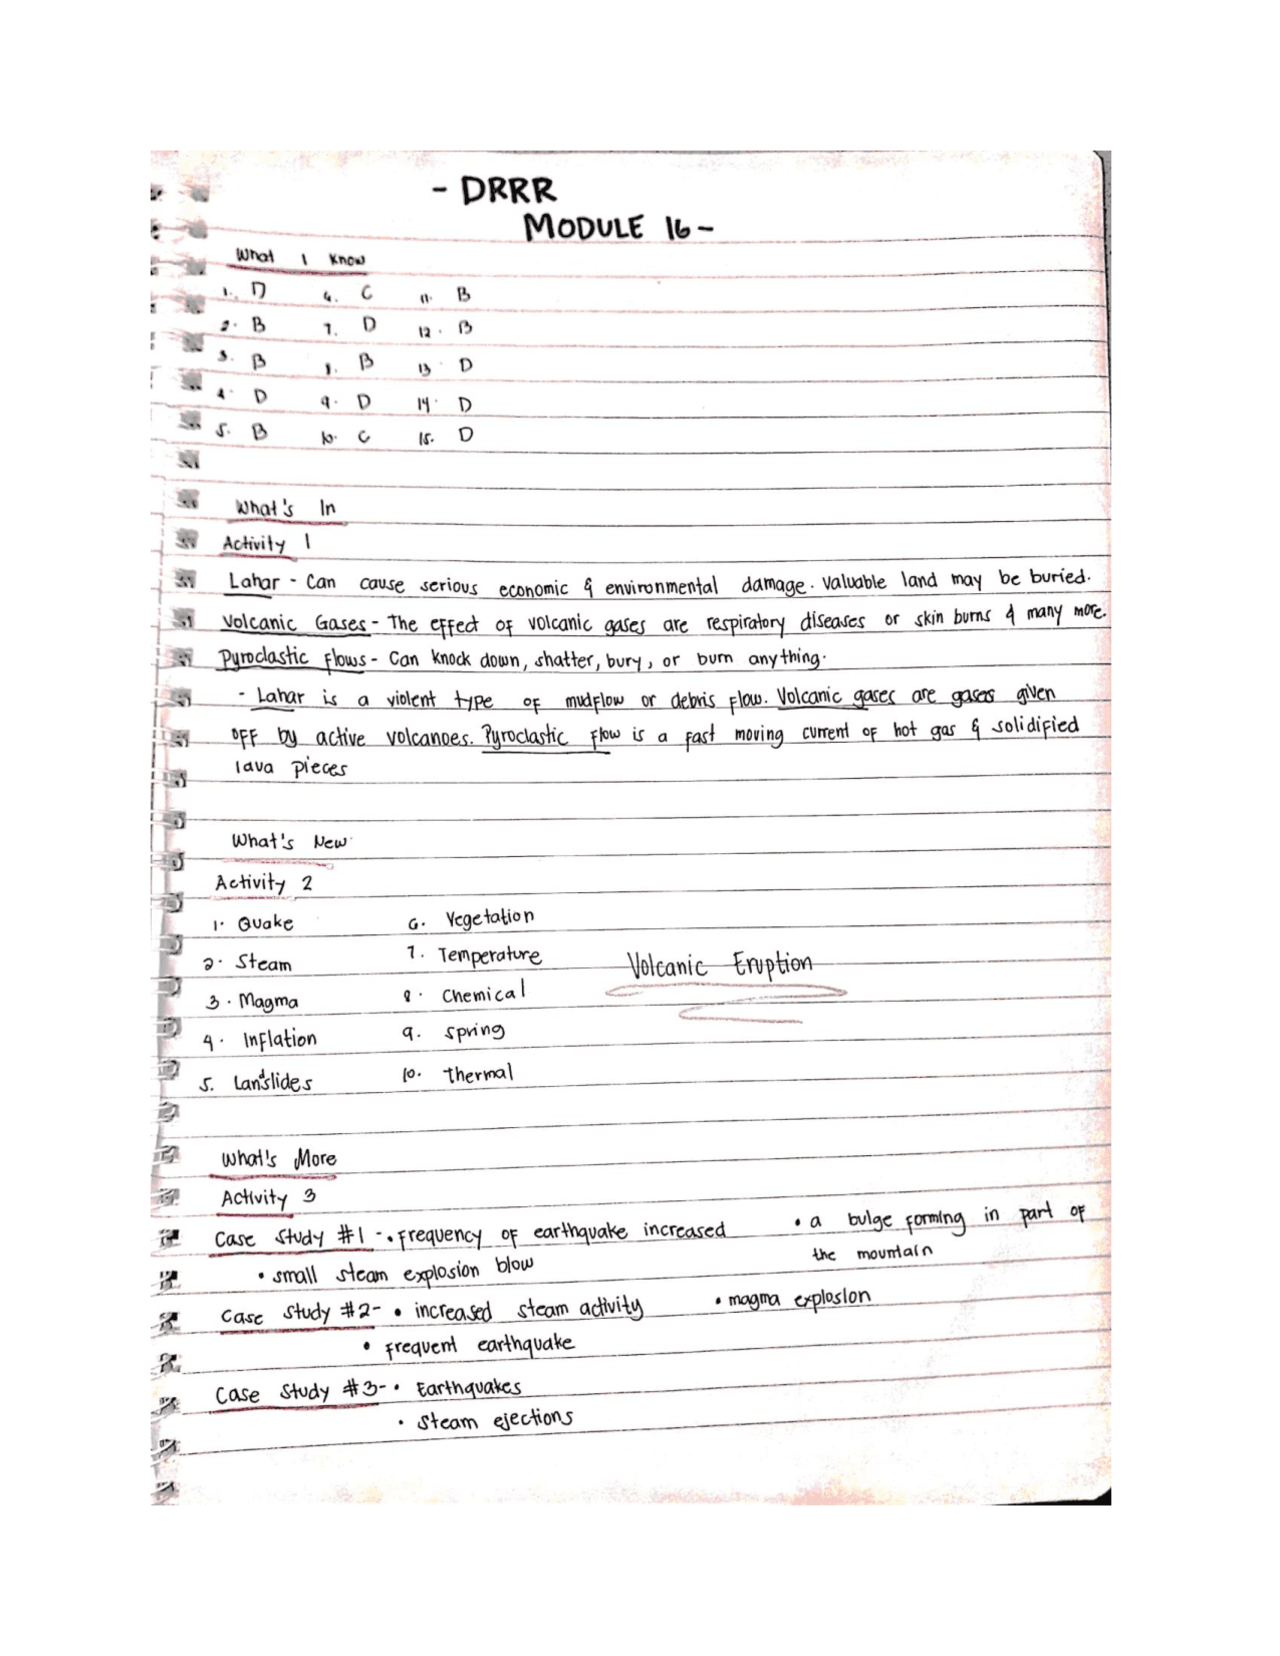 - DRRR
MODULE 16 -
What I Know
1. D 6. C 11. B
2. B 7. D 12. B
3. B 8. B 13 D
4. D 9. D 14. D
5. B 10. C 15. D
What's In
Activity 1
Lahar - Can cause serious economic & environmental damage. Valuable land may be buried.
Volcanic Gases - The effect of volcanic gases are respiratory diseases or skin burns & many more.
Pyroclastic Flows - Can knock down, shatter, bury, or burn anything.
- Lahar is a violent type of mudflow or debris flow. Volcanic gases are gases given
off by active volcanoes. Pyroclastic flow is a fast moving current of hot gas & solidified
lava pieces
What's New
Activity 2
1. Quake 6. Vegetation
2. Steam 7. Temperature Volcanic Eruption
3. Magma 8. Chemical
4. Inflation 9. Spring
5. Landslides 10. Thermal
What's More
Activity 3
Case Study #1 - • frequency of earthquake increased • a bulge forming in part of
the mountain
• small steam explosion blow
Case Study #2 - • increased steam activity • magma explosion
• frequent earthquake
Case Study #3 - • Earthquakes
• Steam ejections